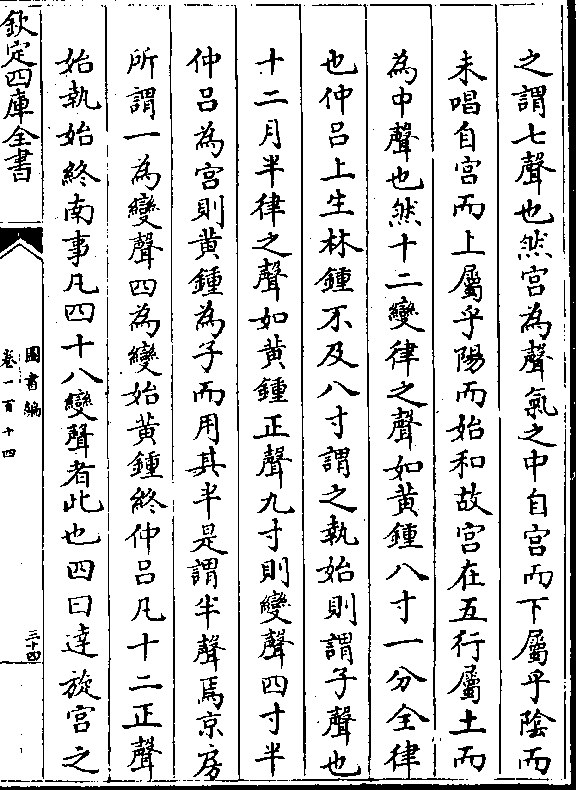 之謂七聲也然宮為聲氣之中自宮而下屬乎陰而
未唱自宮而上屬乎陽而始和故宮在五行屬土而
為中聲也然十二變律之聲如黃鍾八寸一分全律
也仲呂上生林鍾不及八寸謂之執始則謂子聲也
十二月半律之聲如黃鍾正聲九寸則變聲四寸半
仲呂為宮則黃鍾為子而用其半是謂半聲焉京房
所謂一為變聲四為變始黃鍾終仲呂凡十二正聲
始執始終南事凡四十八變聲者此也四曰達旋宮之
欽定四庫全書
圖書編
卷一百十四
三十四